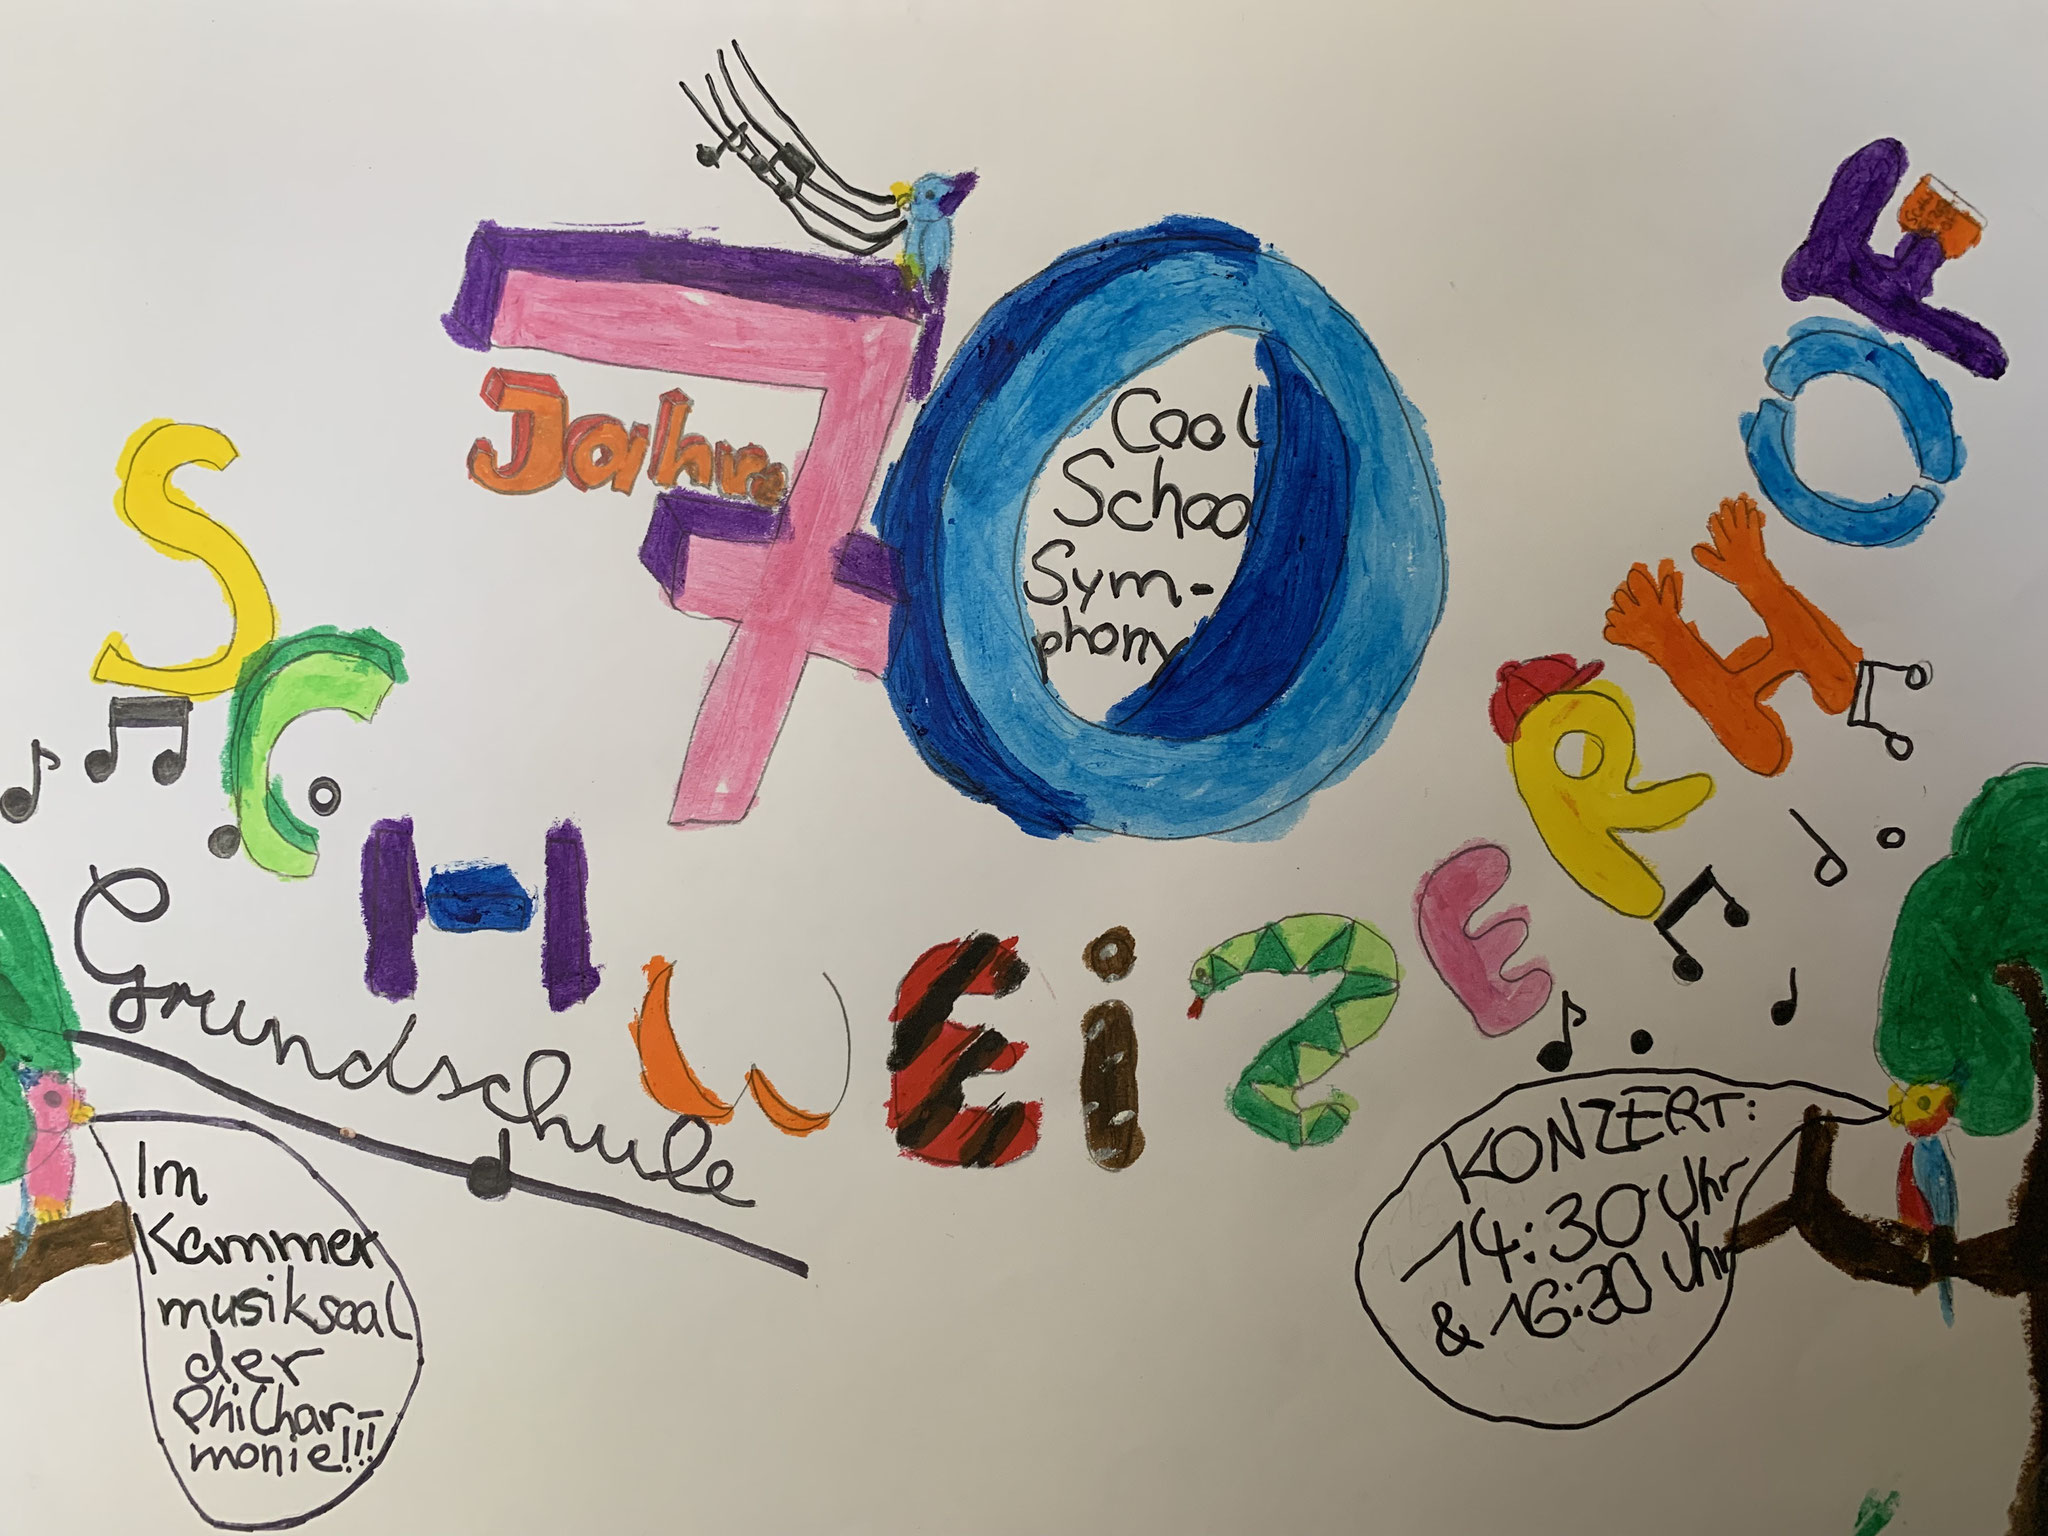 70
Jahre
Cool
School
Sym-
phony
SCHWEiZERHOF
Grundschule
Im
Kammer
musiksaal
der
Philhar-
monie!!!
KONZERT:
14:30 Uhr
& 16:30 Uhr